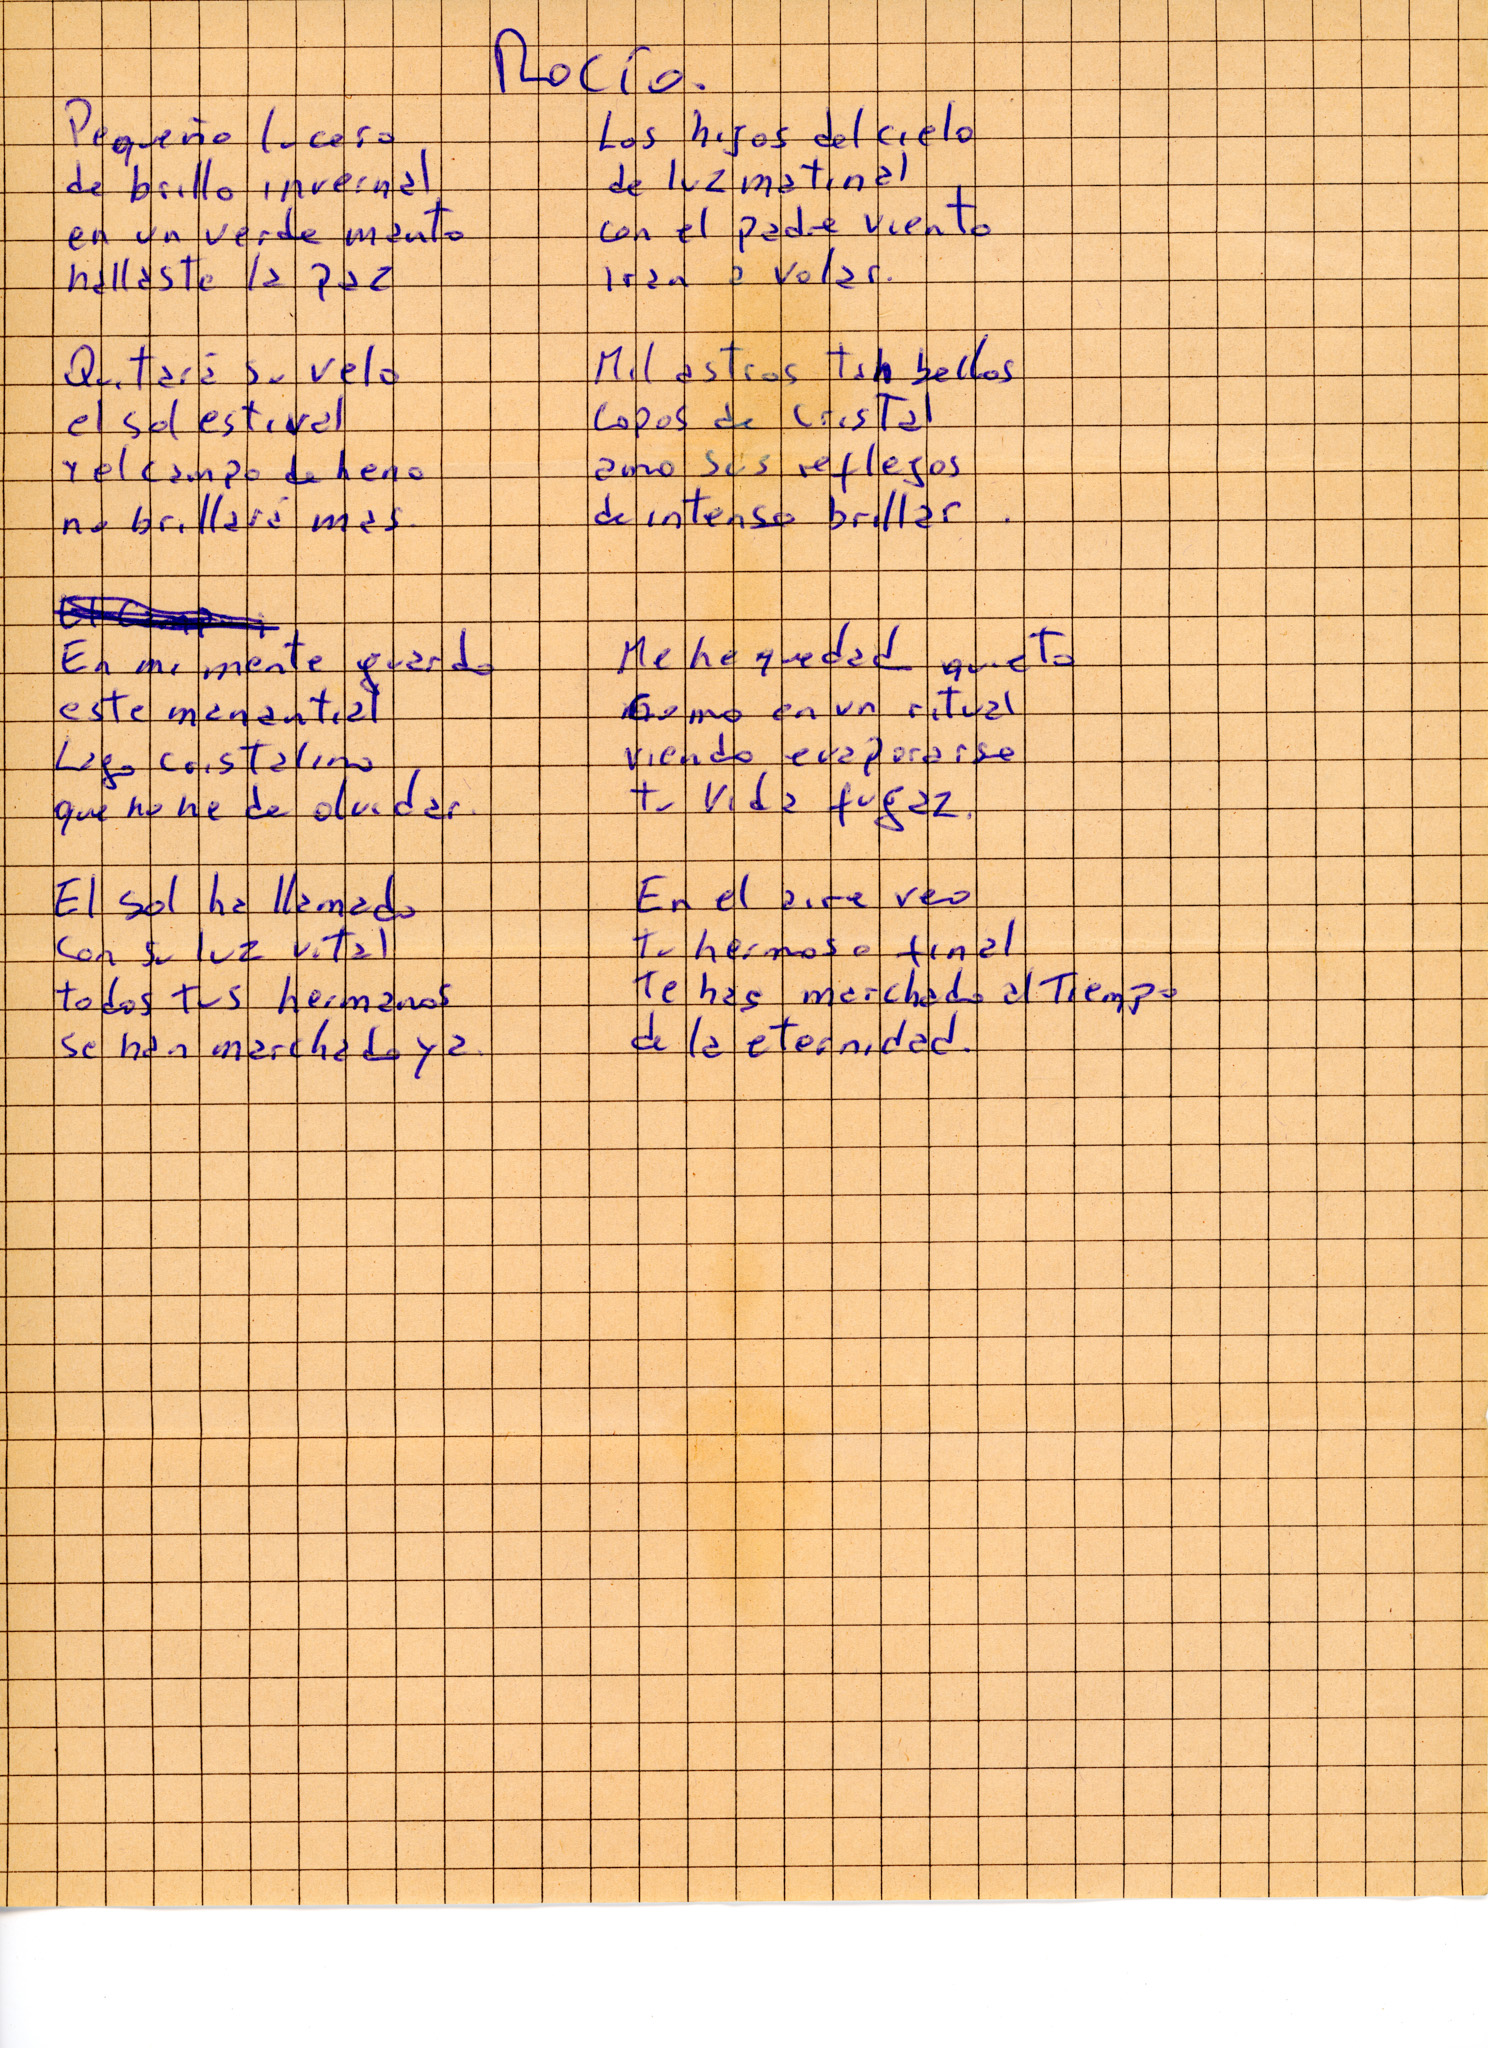 Rocío.
Pequeño lucero
de brillo invernal
en un verde manto
hallaste la paz
Quitará su velo
el sol estival
y el campo de heno
no brillará mas.
En mi mente guardo
este manantial
Lago cristalino
que no he de olvidar.
El sol ha llamado
con su luz vital
todos tus hermanos
se han marchado ya.
Los hijos del cielo
de luz matinal
con el padre viento
iran a volar.
Mil astros tan bellos
copos de cristal
amo sus reflejos
de intenso brillar.
Me he quedado quieto
como en un ritual
viendo evaporarse
tu vida fugaz.
En el aire veo
tu hermoso final
te has marchado al Tiempo
de la eternidad.